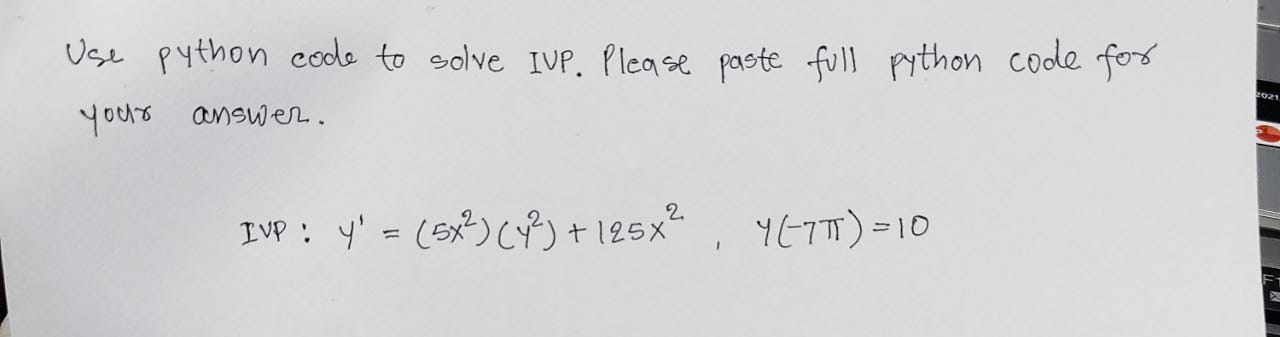 Use python code to solve IVP. Please paste full python code for
your answer.
IVP : y' = (5x²)(y²) + 125x² , y(-7π) = 10
2021
F1